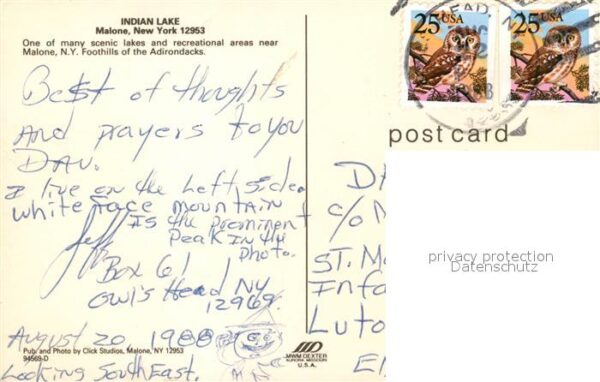 INDIAN LAKE
Malone, New York 12953
One of many scenic lakes and recreational areas near
Malone, N.Y. Foothills of the Adirondacks.
Best of thoughts
And prayers to you
DAV.
I live on the Left side.
White Face mountain
Is the prominent
Peak In the
photo.
Jeff
Box 61
Owl's Head NY
12969
August 20, 1988
Looking SouthEast.
Pub. and Photo by Click Studios, Malone, NY 12953
94569-D
MWM DEXTER
AURORA, MISSOURI
U.S.A.
25 USA
25 USA
post card
c/o
ST. M
Info
Luto
privacy protection
Datenschutz